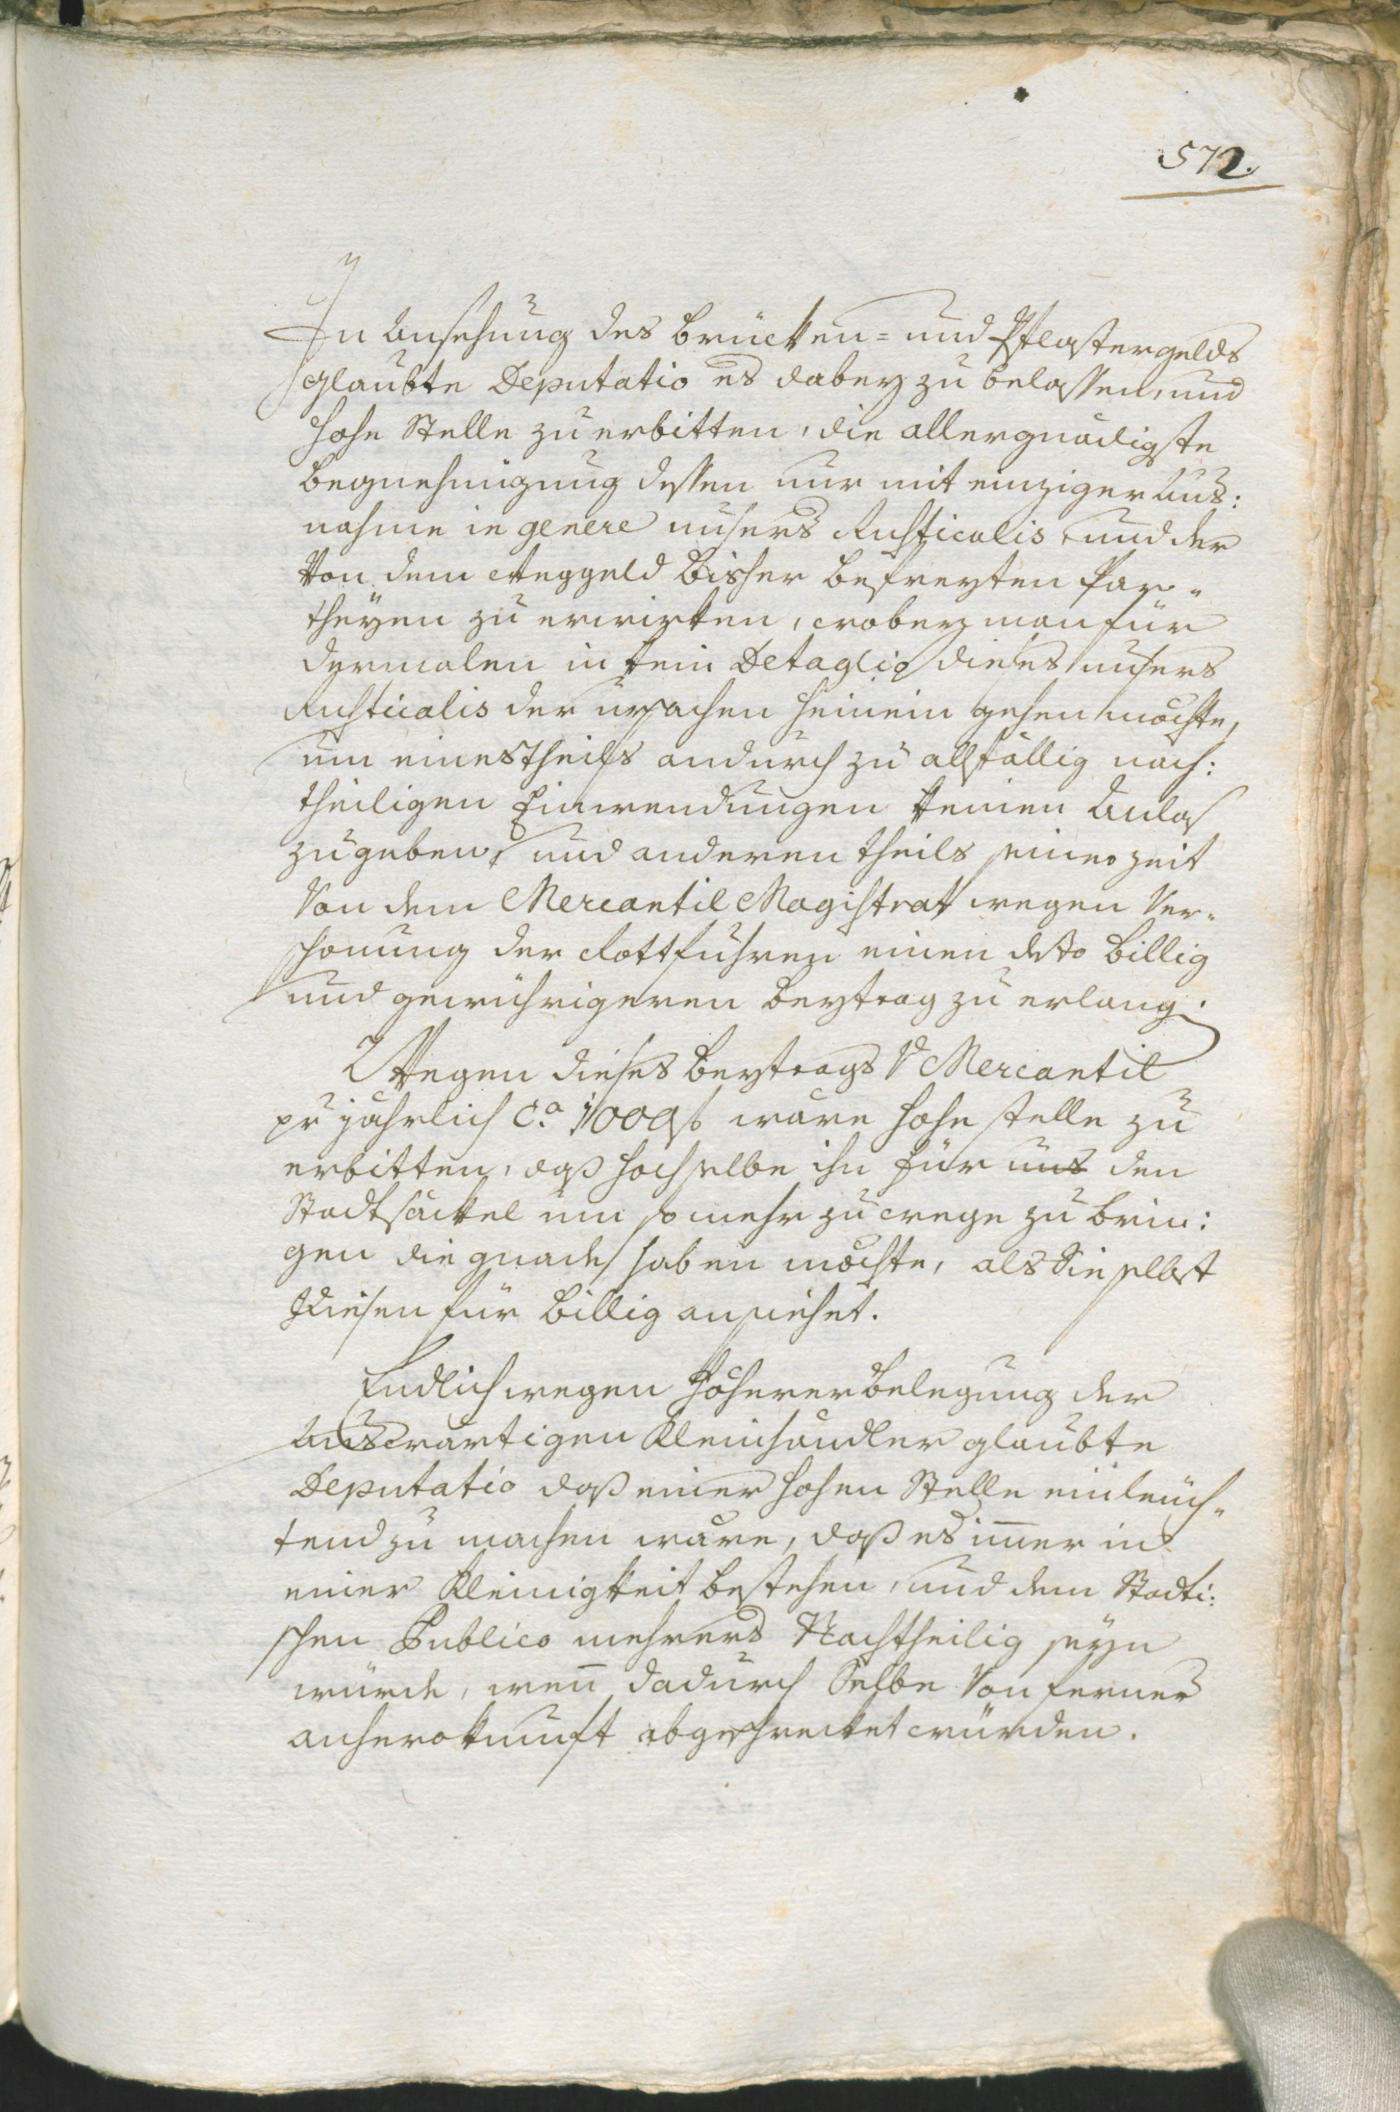 572.
In Ansehung des Brücken= und Pflastergelds
glaubte Deputatio es dabey zu belassen, und
hohe Stelle zu erbitten, die allergnädigste
Begnehmigung dessen nur mit einziger Aus:
nahme in genere unsers Rusticalis und der
von dem Weggeld bisher befreyten Par-
theyen zu erwirken, wobey man für
dermalen in kein Detaglio dieses unsers
Rusticalis der ursachen hinein gehen möchte,
um einestheils andurch zu allfällig nach:
theiligen Einwendungen keinen Anlaß
zugeben, und anderen theils seiner zeit
Von dem Mercantil Magistrat wegen Ver-
schonung der Rottfuhren einen desto billig
und gewührigeren Beytrag zu erlang.
Wegen dieses Beytrags V Mercantil
pr jährlich ca. 1000 f wäre hohe stelle zu
erbitten, daß hochselbe ihn für uns den
Stadtsäckel um so mehr zuwege zu brin:
gen die gnade haben möchte, als Sie selbst
diesen für billig ansiehet.
Endlich wegen höherer Belegung der
Auswärtigen Kleinhandler glaubte
Deputatio daß einer hohen Stelle einleuch-
tend zu machen wäre, daß es immer in
einer Kleinigkeit bestehen, und dem Stadti:
schen Publico mehrers Nachtheilig seyn
würde, wenn dadurch Selbe Von ferner
anherokunft abgeschrecket würden.